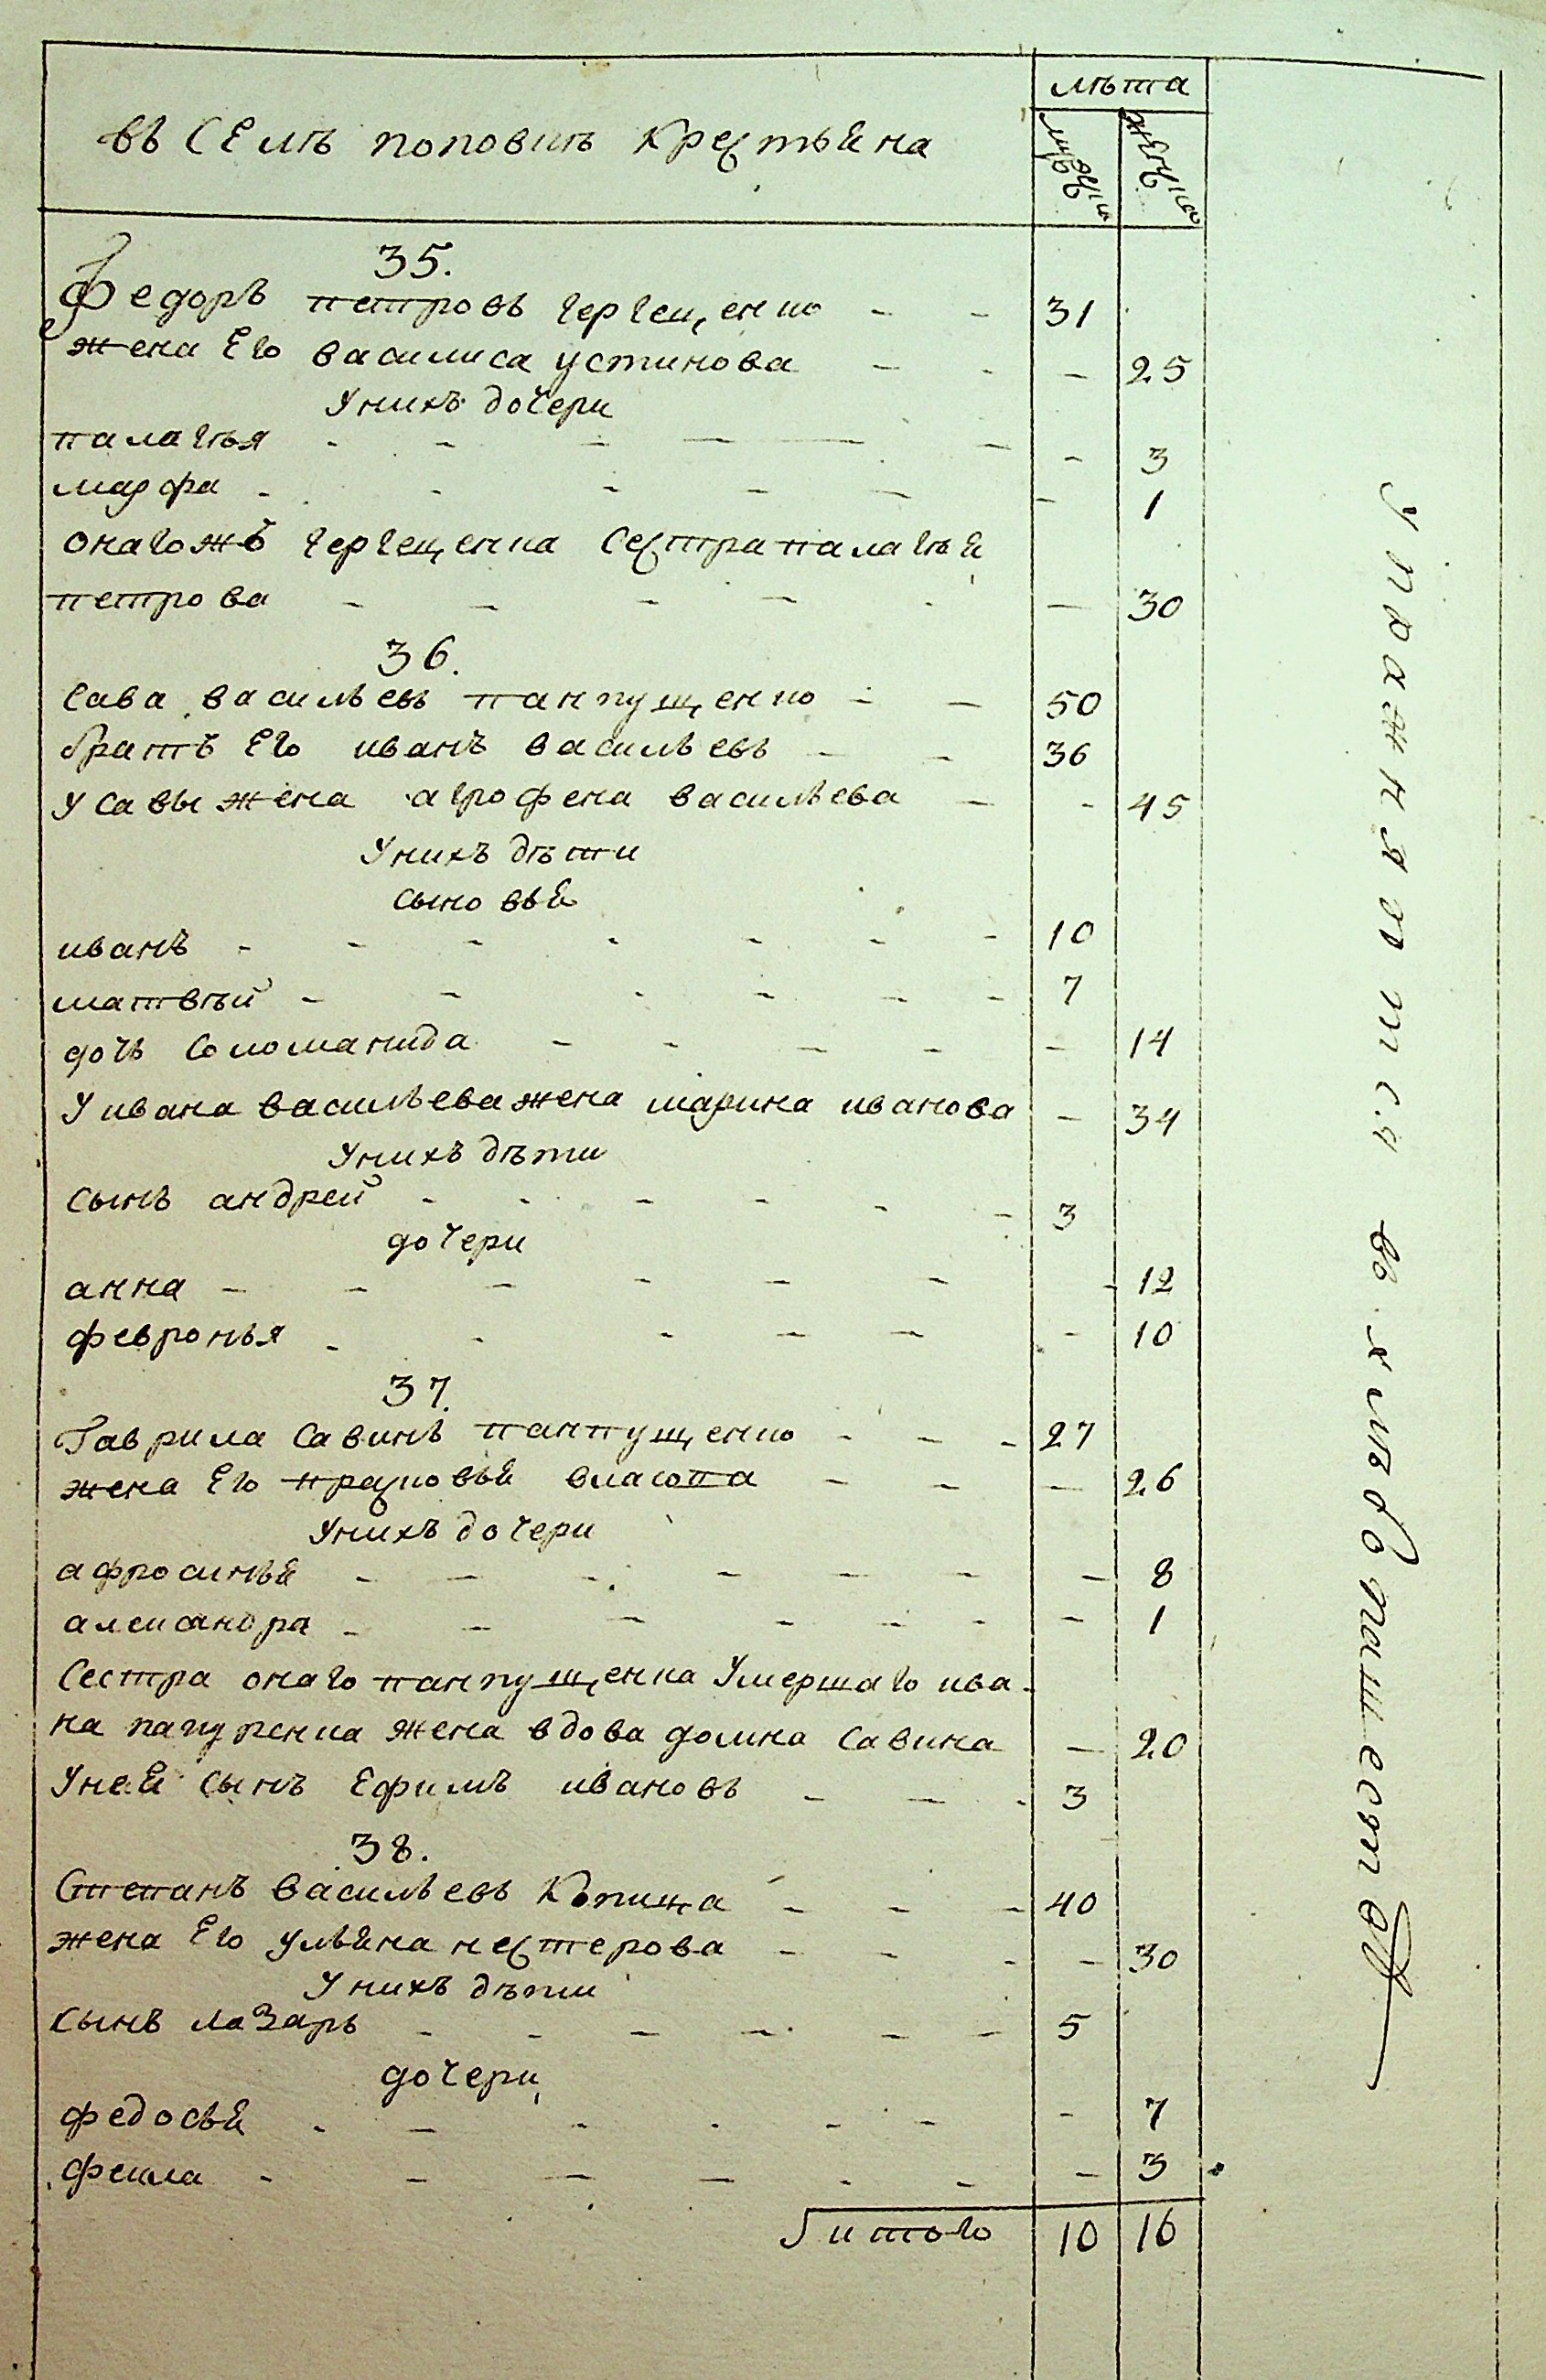 въ селѣ поповкѣ крестьяна
лѣта
мужеск
женска
35.
Федоръ петровъ черченко - - 31
жена Его василиса устинова - - - 25
Унихъ дочери
палагѣя - - - - - - 3
марфа - - - - - - 1
онагожъ черченка сестра палагѣя
петрова - - - - - - 30
36.
Сава васильевъ панпущенко - - 50
братъ Его иванъ васильевъ - - 36
У савы жена агрофена васильева - - 45
Унихъ дѣти
сыновья
иванъ - - - - - - - 10
матвѣй - - - - - - 7
дочь Соломанида - - - - - 14
У ивана васильева жена марина иванова - 34
Унихъ дѣти
сынъ андрей - - - - - - 3
дочери
анна - - - - - - - 12
февронья - - - - - - 10
37.
Гаврила Савинъ панпущенко - - - 27
жена Его прасковья власова - - - 26
Унихъ дочери
афросинья - - - - - - - 8
александра - - - - - - - 1
Сестра онаго панпущенка Умершаго ива-
на жена вдова домна Савина - 20
Унея сынъ Ефимъ ивановъ - - - 3
38.
Степанъ васильевъ - - - 40
жена Его ульяна нестерова - - - - 30
Унихъ дѣти
сынъ лазарь - - - - - - 5
дочери
федосья - - - - - - - 7
фекла - - - - - - - 3
итого 10 16